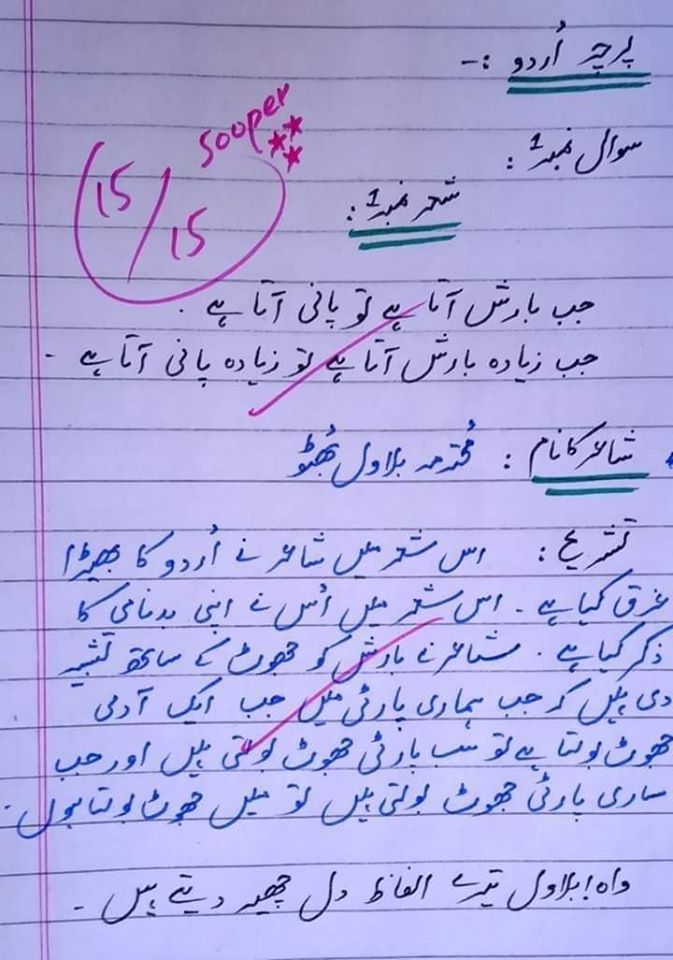 پرچہ اُردو :-
سوال نمبر 1 :
sooper
15/15
شعر نمبر 1 :
جب بارش آتا ہے تو پانی آتا ہے ۔
جب زیادہ بارش آتا ہے تو زیادہ پانی آتا ہے ۔
شاعر کا نام : مُحترمہ بلاول بُھٹو
تشریح : اس شعر میں شاعر نے اُردو کا بھیڑا
غرق کیا ہے ۔ اس شعر میں اُس نے اپنی بدنامی کا
ذکر کیا ہے ۔ شاعر نے بارش کو جھوٹ کے ساتھ تشبیہ
دی ہیں کہ جب ہماری پارٹی میں جب ایک آدمی
جھوٹ بولتا ہے تو سب پارٹی جھوٹ بولتی ہیں اور جب
ساری پارٹی جھوٹ بولتی ہیں تو میں جھوٹ بولتا ہوں ۔
واہ! بلاول تیرے الفاظ دل چھیر دیتے ہیں ۔